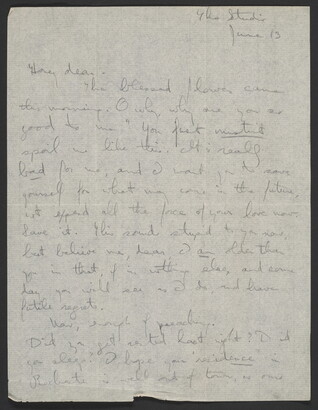 The Studio
June 13
dear.
The blessed flowers came
this morning. O why why are you so
good to me? You just mustn't
spoil me like this. It's really
bad for me, and I want you to save
yourself for what may come in the future,
not expend all the force of your love now.
Save it. This sounds stupid to you now,
but believe me, I am older than
you in that, if in nothing else, and some
day you will see as I do and have
futile regrets.
Now, enough of preaching.
Did you get seated last night? Did
you sleep? I hope your "residence" in
is well out of town, as one